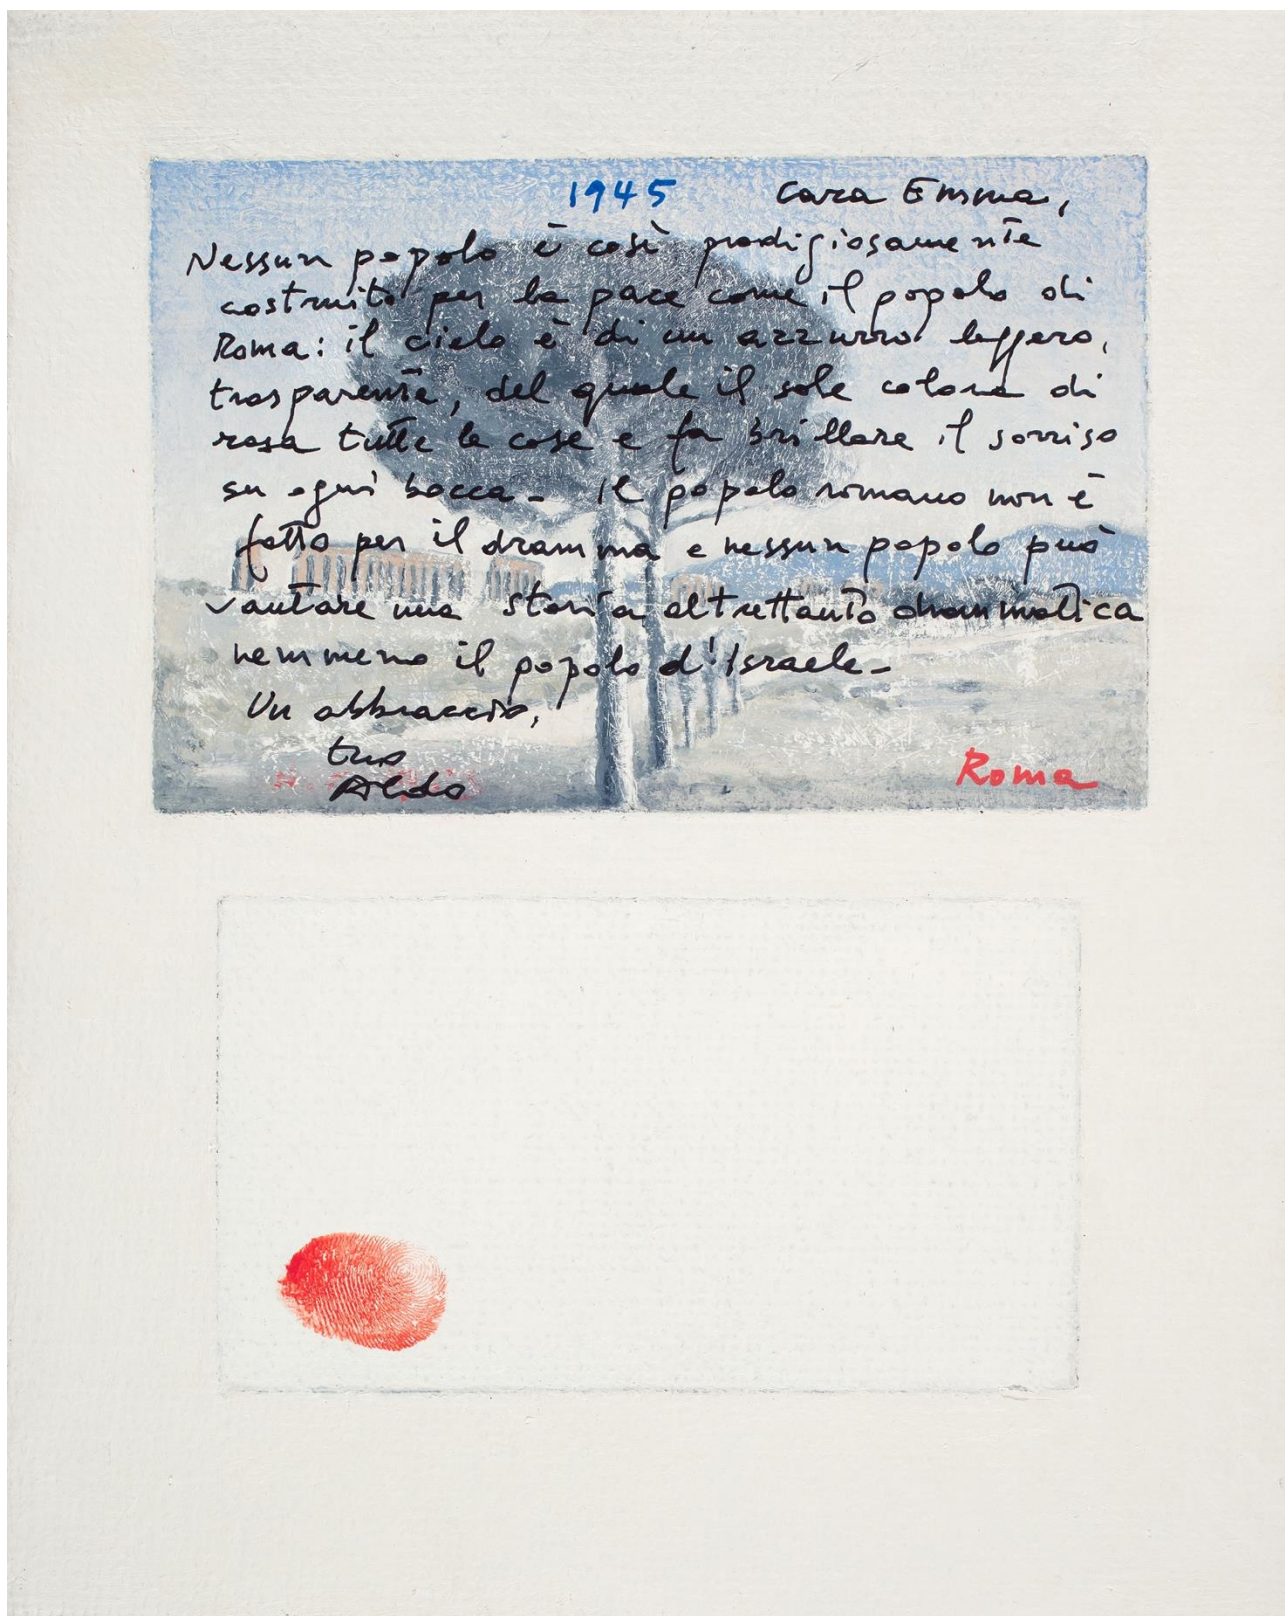 1945 Cara Emma,
Nessun popolo è così prodigiosamente
costruito per la pace come il popolo di
Roma: il cielo è di un azzurro leggero,
trasparente, del quale il sole colora di
rosa tutte le cose e fa brillare il sorriso
su ogni bocca - Il popolo romano non è
fatto per il dramma e nessun popolo può
vantare una storia altrettanto drammatica
nemmeno il popolo d'Israele -
Un abbraccio,
tuo
Aldo
Roma